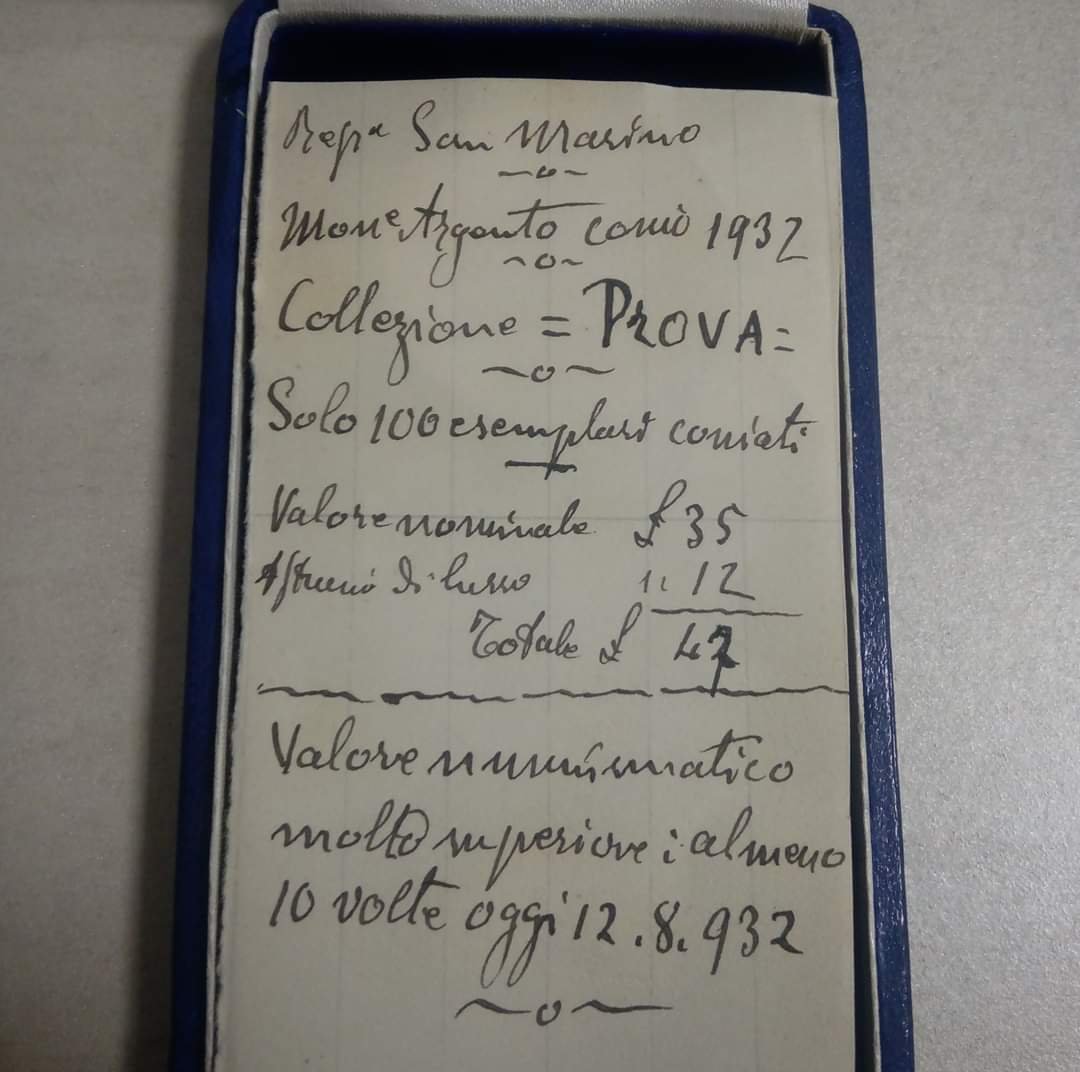 Repᵃ San Marino
Monᵉ Argento coniò 1932
Collezione = PROVA =
Solo 100 esemplari coniati
Valore nominale £ 35
Astuccio di lusso 1. 12
Totale £ 47
Valore numismatico
molto superiore: almeno
10 volte oggi 12.8.932